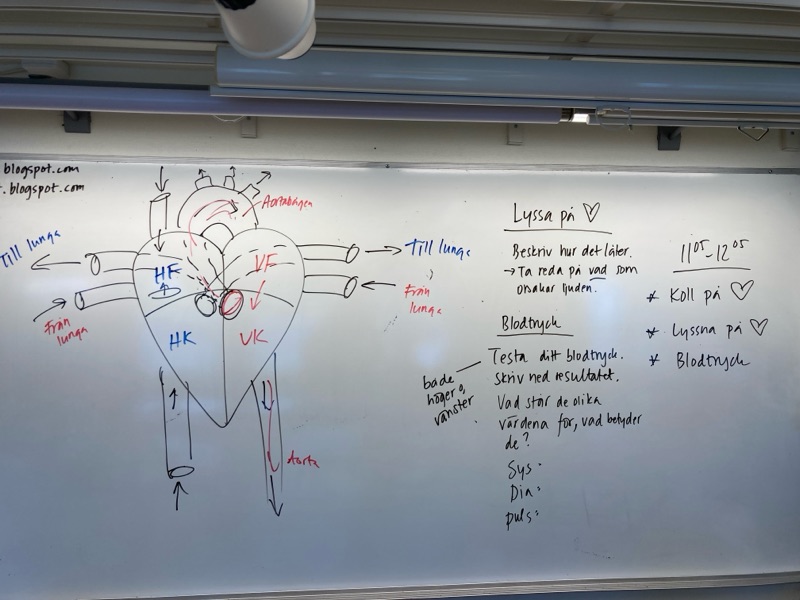 blogspot.com
blogspot.com
Till lunga
Från
lunga
Aortabågen
HF
VF
HK
VK
Till lunga
Från
lunga
Aorta
Lyssa på ♡
Beskriv hur det låter.
→ Ta reda på vad som
orsakar ljuden.
Blodtryck
Testa ditt blodtryck.
skriv ned resultatet.
både
höger o,
vänster
Vad står de olika
värdena för, vad betyder
de?
Sys:
Dia:
puls:
11:05-12:05
* Koll på ♡
* Lyssna på ♡
* Blodtryck